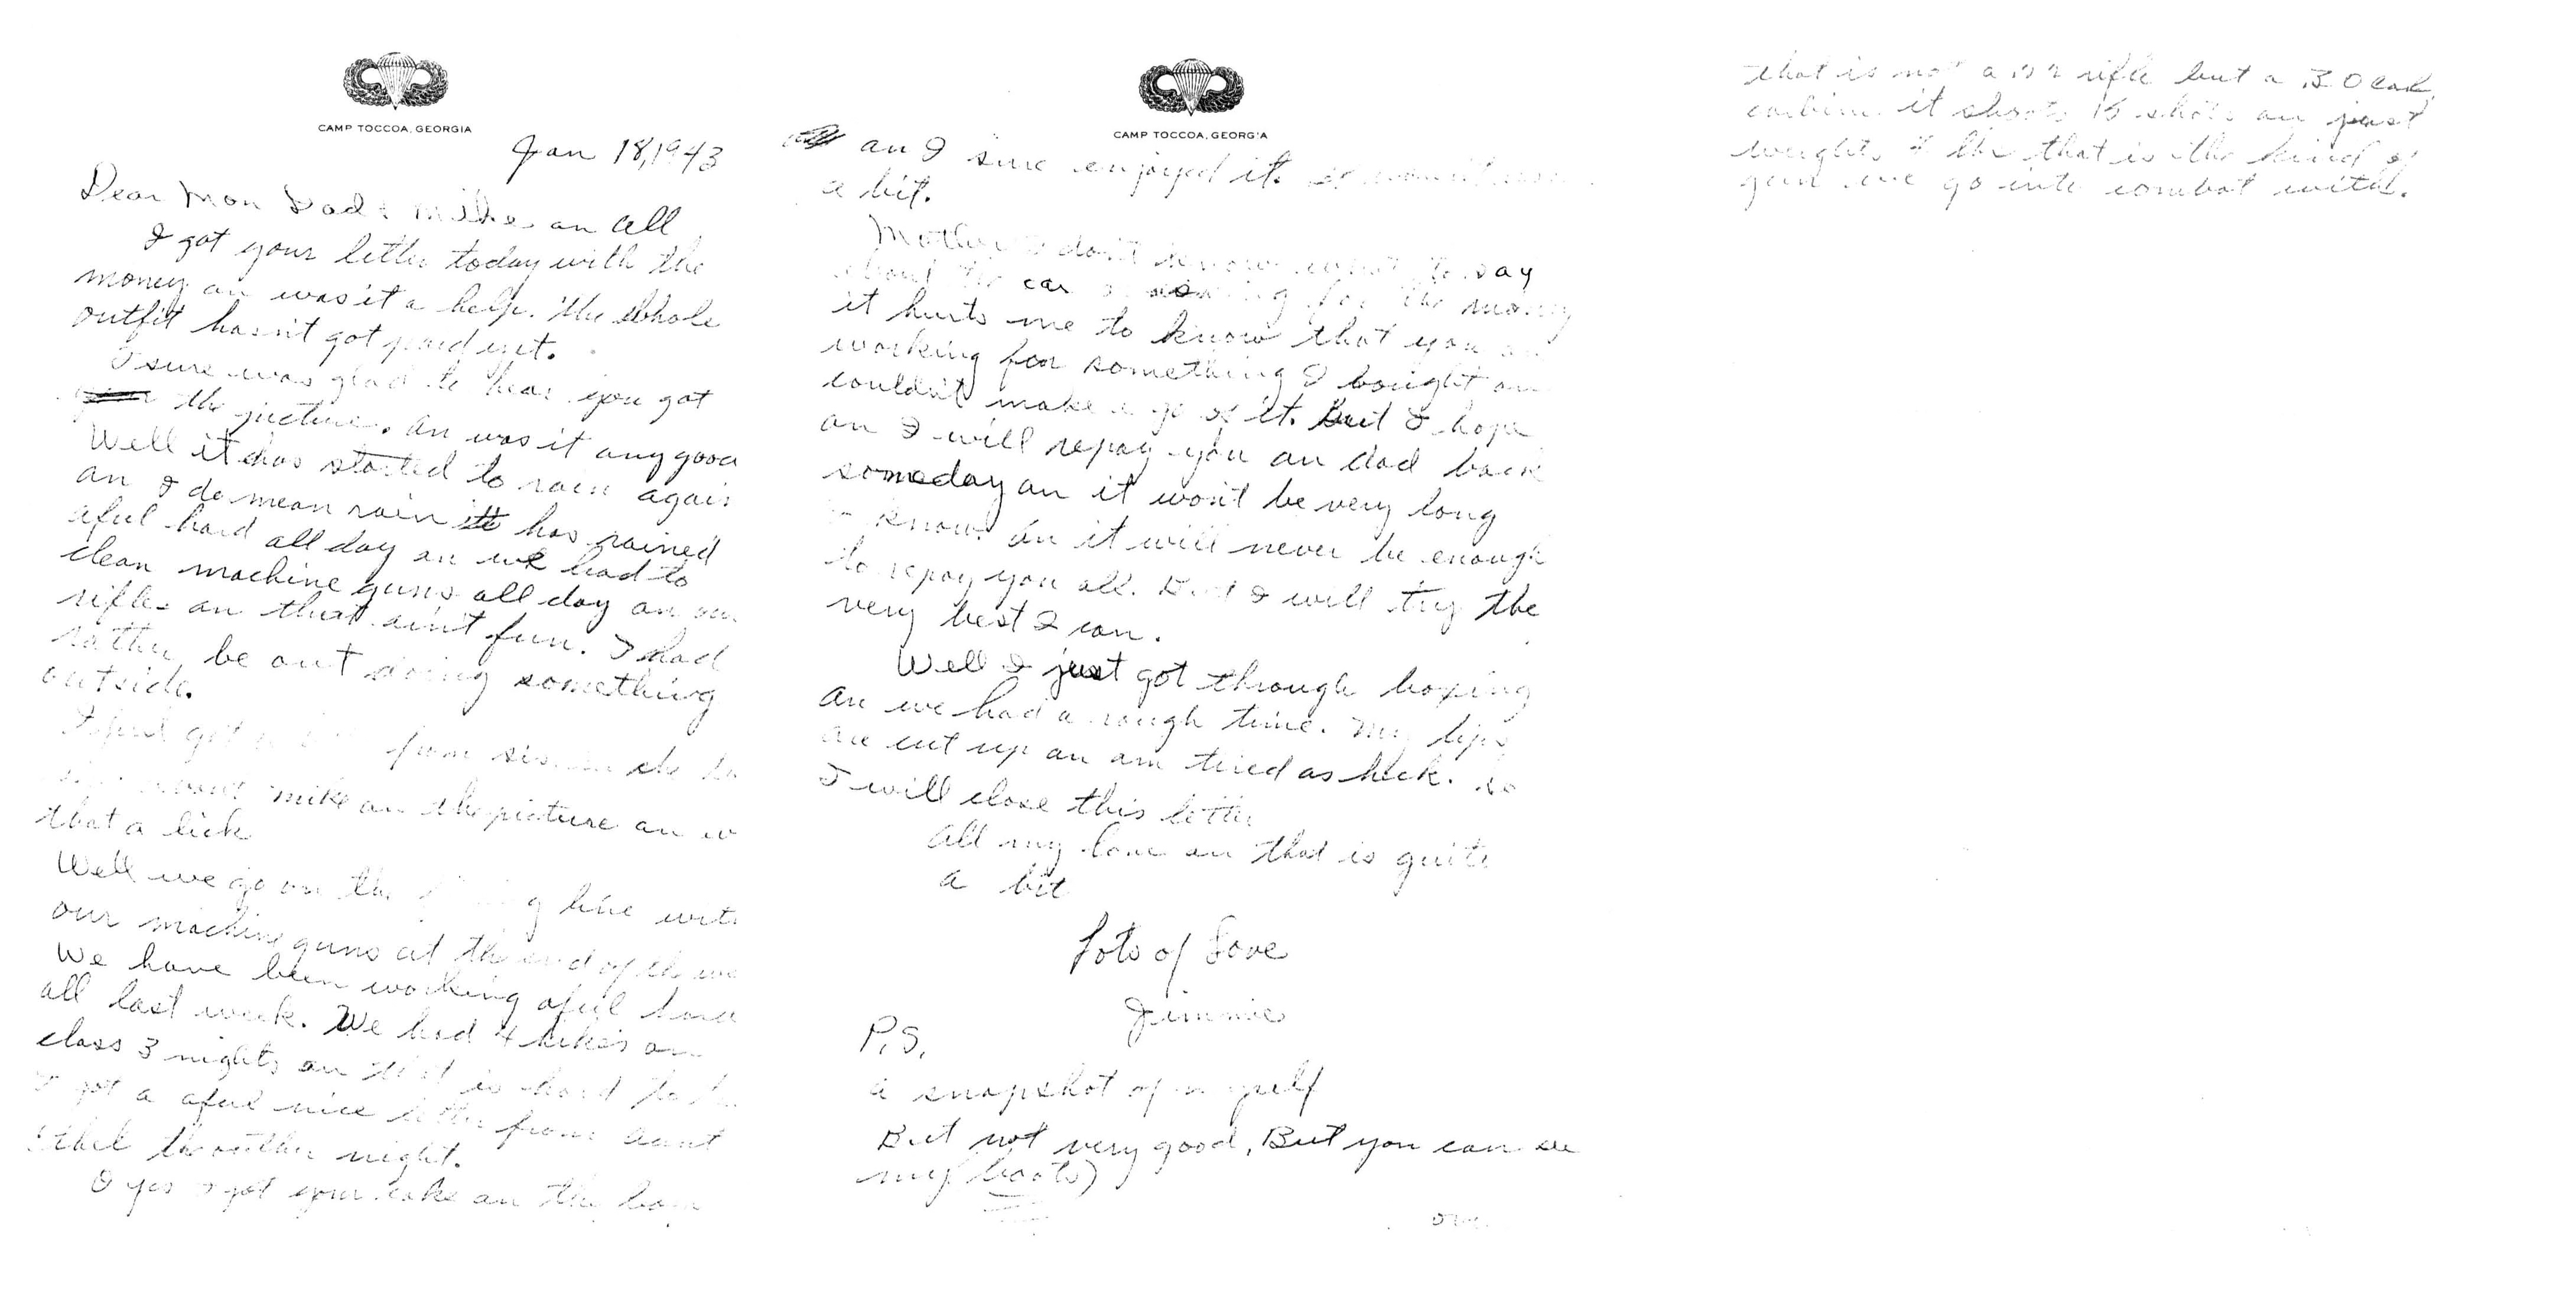 CAMP TOCCOA, GEORGIA
Jan 18, 1943
Dear Mom Dad & Mike an all
I got your letter today with the
money an was it a help. The whole
outfit hasn't got paid yet.
I sure was glad to hear you got
the picture. An was it any good
Well it has started to rain again
an I do mean rain it has rained
aful hard all day an we had to
clean machine guns all day an our
rifles an that ain't fun. I had
rather be out doing something
outside.
I just got from sis an she
about Mike an the picture an
that a lick
Well we go on the line with
our machine guns at the end of the
We have been working aful hard
all last week. We had 4 hikes an
class 3 nights an that is hard to
I got a aful nice letter from aunt
Ethel the other night.
O yes I got your cake an the
CAMP TOCCOA, GEORGIA
an I sure enjoyed it.
a bit.
Mother I don't know what to say
about the car for the money
it hurts me to know that you
working for something I bought an
couldn't make a go of it. But I hope
an I will repay you an dad back
someday an it won't be very long
I know. An it will never be enough
to repay you all. But I will try the
very best I can.
Well I just got through boxing
an we had a rough time. My lips
are cut up an am tired as heck. So
I will close this letter
All my love an that is quite
a bit
Lots of Love
Jimmie
P.S.
a snapshot of myself
But not very good, But you can see
my boots)
over
that is not a rifle but a .30 cal
carbine it shoots 15 shots an just
weights that is the kind of
gun we go into combat with.